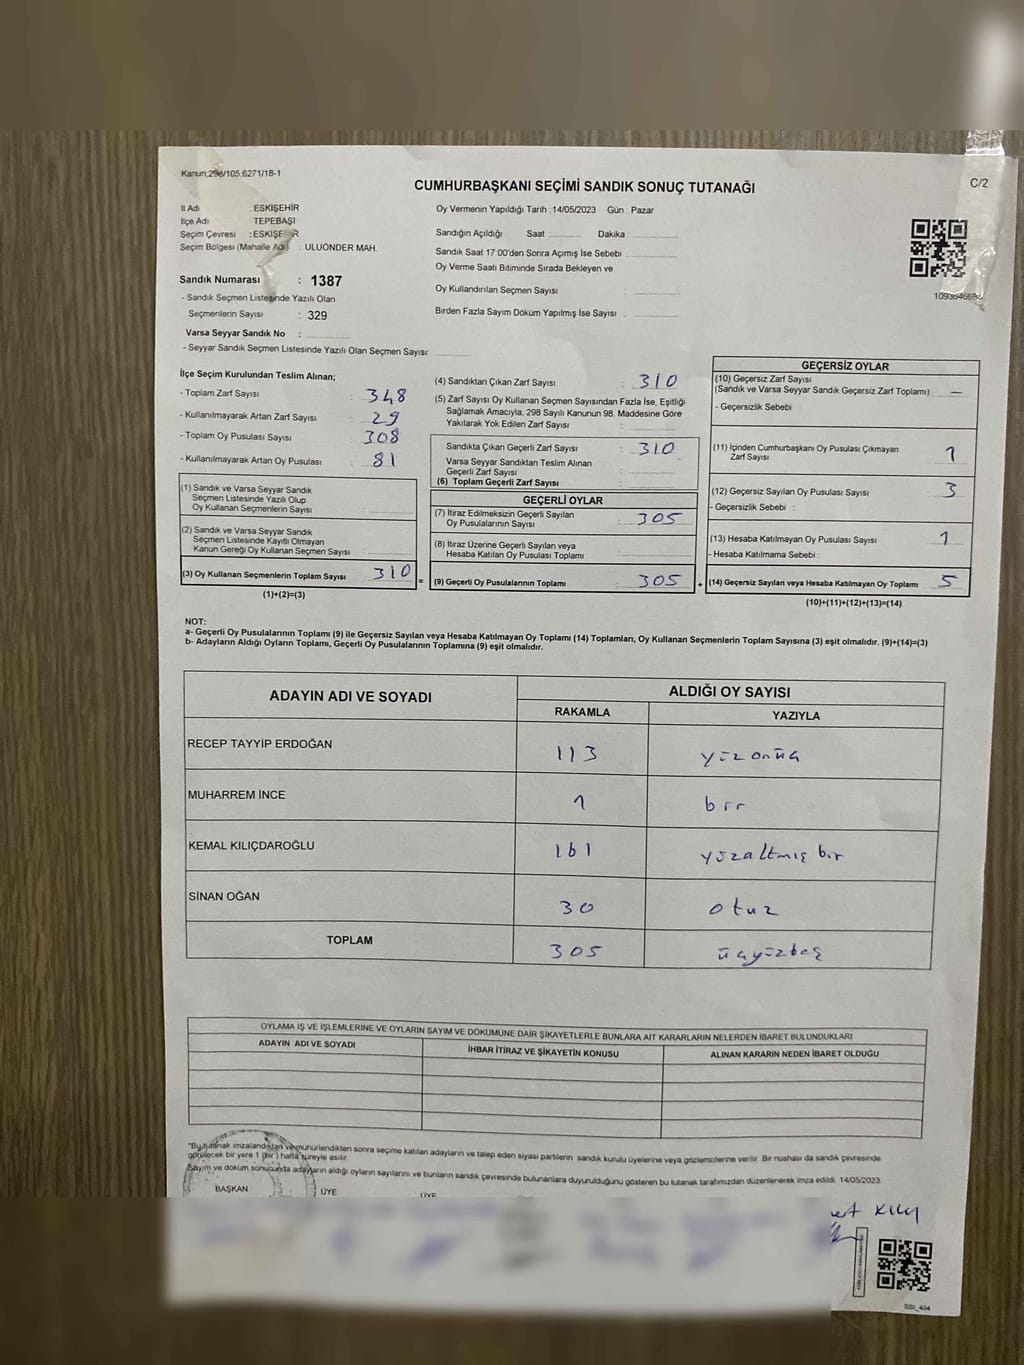 Kanun:298/105.6271/18-1
C/2
CUMHURBAŞKANI SEÇİMİ SANDIK SONUÇ TUTANAĞI
İl Adı : ESKİŞEHİR
İlçe Adı : TEPEBAŞI
Seçim Çevresi : ESKİŞEHİR
Seçim Bölgesi (Mahalle Adı) : ULUÖNDER MAH.
Sandık Numarası : 1387
- Sandık Seçmen Listesinde Yazılı Olan
Seçmenlerin Sayısı : 329
Varsa Seyyar Sandık No :
- Seyyar Sandık Seçmen Listesinde Yazılı Olan Seçmen Sayısı:
Oy Vermenin Yapıldığı Tarih :14/05/2023 Gün : Pazar
Sandığın Açıldığı Saat : Dakika :
Sandık Saat 17:00'den Sonra Açımış İse Sebebi :
Oy Verme Saati Bitiminde Sırada Bekleyen ve
Oy Kullandırılan Seçmen Sayısı :
Birden Fazla Sayım Döküm Yapılmış İse Sayısı :
İlçe Seçim Kurulundan Teslim Alınan;
- Toplam Zarf Sayısı : 348
- Kullanılmayarak Artan Zarf Sayısı : 29
- Toplam Oy Pusulası Sayısı : 308
- Kullanılmayarak Artan Oy Pusulası : 81
(1) Sandık ve Varsa Seyyar Sandık
Seçmen Listesinde Yazılı Olup
Oy Kullanan Seçmenlerin Sayısı :
(2) Sandık ve Varsa Seyyar Sandık
Seçmen Listesinde Kayıtlı Olmayan
Kanun Gereği Oy Kullanan Seçmen Sayısı :
(3) Oy Kullanan Seçmenlerin Toplam Sayısı : 310 =
(1)+(2)=(3)
(4) Sandıktan Çıkan Zarf Sayısı : 310
(5) Zarf Sayısı Oy Kullanan Seçmen Sayısından Fazla İse, Eşitliği
Sağlamak Amacıyla, 298 Sayılı Kanunun 98. Maddesine Göre
Yakılarak Yok Edilen Zarf Sayısı :
Sandıkta Çıkan Geçerli Zarf Sayısı : 310
Varsa Seyyar Sandıktan Teslim Alınan
Geçerli Zarf Sayısı :
(6) Toplam Geçerli Zarf Sayısı :
GEÇERLİ OYLAR
(7) İtiraz Edilmeksizin Geçerli Sayılan
Oy Pusulalarının Sayısı : 305
(8) İtiraz Üzerine Geçerli Sayılan veya
Hesaba Katılan Oy Pusulası Toplamı :
(9) Geçerli Oy Pusulalarının Toplamı : 305 +
GEÇERSİZ OYLAR
(10) Geçersiz Zarf Sayısı
(Sandık ve Varsa Seyyar Sandık Geçersiz Zarf Toplamı) : —
- Geçersizlik Sebebi
(11) İçinden Cumhurbaşkanı Oy Pusulası Çıkmayan
Zarf Sayısı : 1
(12) Geçersiz Sayılan Oy Pusulası Sayısı : 3
- Geçersizlik Sebebi :
(13) Hesaba Katılmayan Oy Pusulası Sayısı : 1
- Hesaba Katılmama Sebebi :
(14) Geçersiz Sayılan veya Hesaba Katılmayan Oy Toplamı : 5
(10)+(11)+(12)+(13)=(14)
NOT:
a- Geçerli Oy Pusulalarının Toplamı (9) ile Geçersiz Sayılan veya Hesaba Katılmayan Oy Toplamı (14) Toplamları, Oy Kullanan Seçmenlerin Toplam Sayısına (3) eşit olmalıdır. (9)+(14)=(3)
b- Adayların Aldığı Oyların Toplamı, Geçerli Oy Pusulalarının Toplamına (9) eşit olmalıdır.
ADAYIN ADI VE SOYADI ALDIĞI OY SAYISI
RAKAMLA YAZIYLA
RECEP TAYYİP ERDOĞAN 113 yüzonüç
MUHARREM İNCE 1 bir
KEMAL KILIÇDAROĞLU 161 yüzaltmış bir
SİNAN OĞAN 30 otuz
TOPLAM 305 üçyüzbeş
OYLAMA İŞ VE İŞLEMLERİNE VE OYLARIN SAYIM VE DÖKÜMÜNE DAİR ŞİKAYETLERLE BUNLARA AİT KARARLARIN NELERDEN İBARET BULUNDUKLARI
ADAYIN ADI VE SOYADI İHBAR İTİRAZ VE ŞİKAYETİN KONUSU ALINAN KARARIN NEDEN İBARET OLDUĞU
*Bu tutanak imzalandıktan ve mühürlendikten sonra seçime katılan adayların ve talep eden siyasi partilerin sandık kurulu üyelerine veya gözlemcilerine verilir. Bir nüshası da sandık çevresinde
görülecek bir yere 1 (bir) hafta süreyle asılır.
Sayım ve döküm sonucunda adayların aldığı oyların sayılarını ve bunların sandık çevresinde bulunanlara duyurulduğunu gösteren bu tutanak tarafımızdan düzenlenerek imza edildi. 14/05/2023
BAŞKAN ÜYE ÜYE